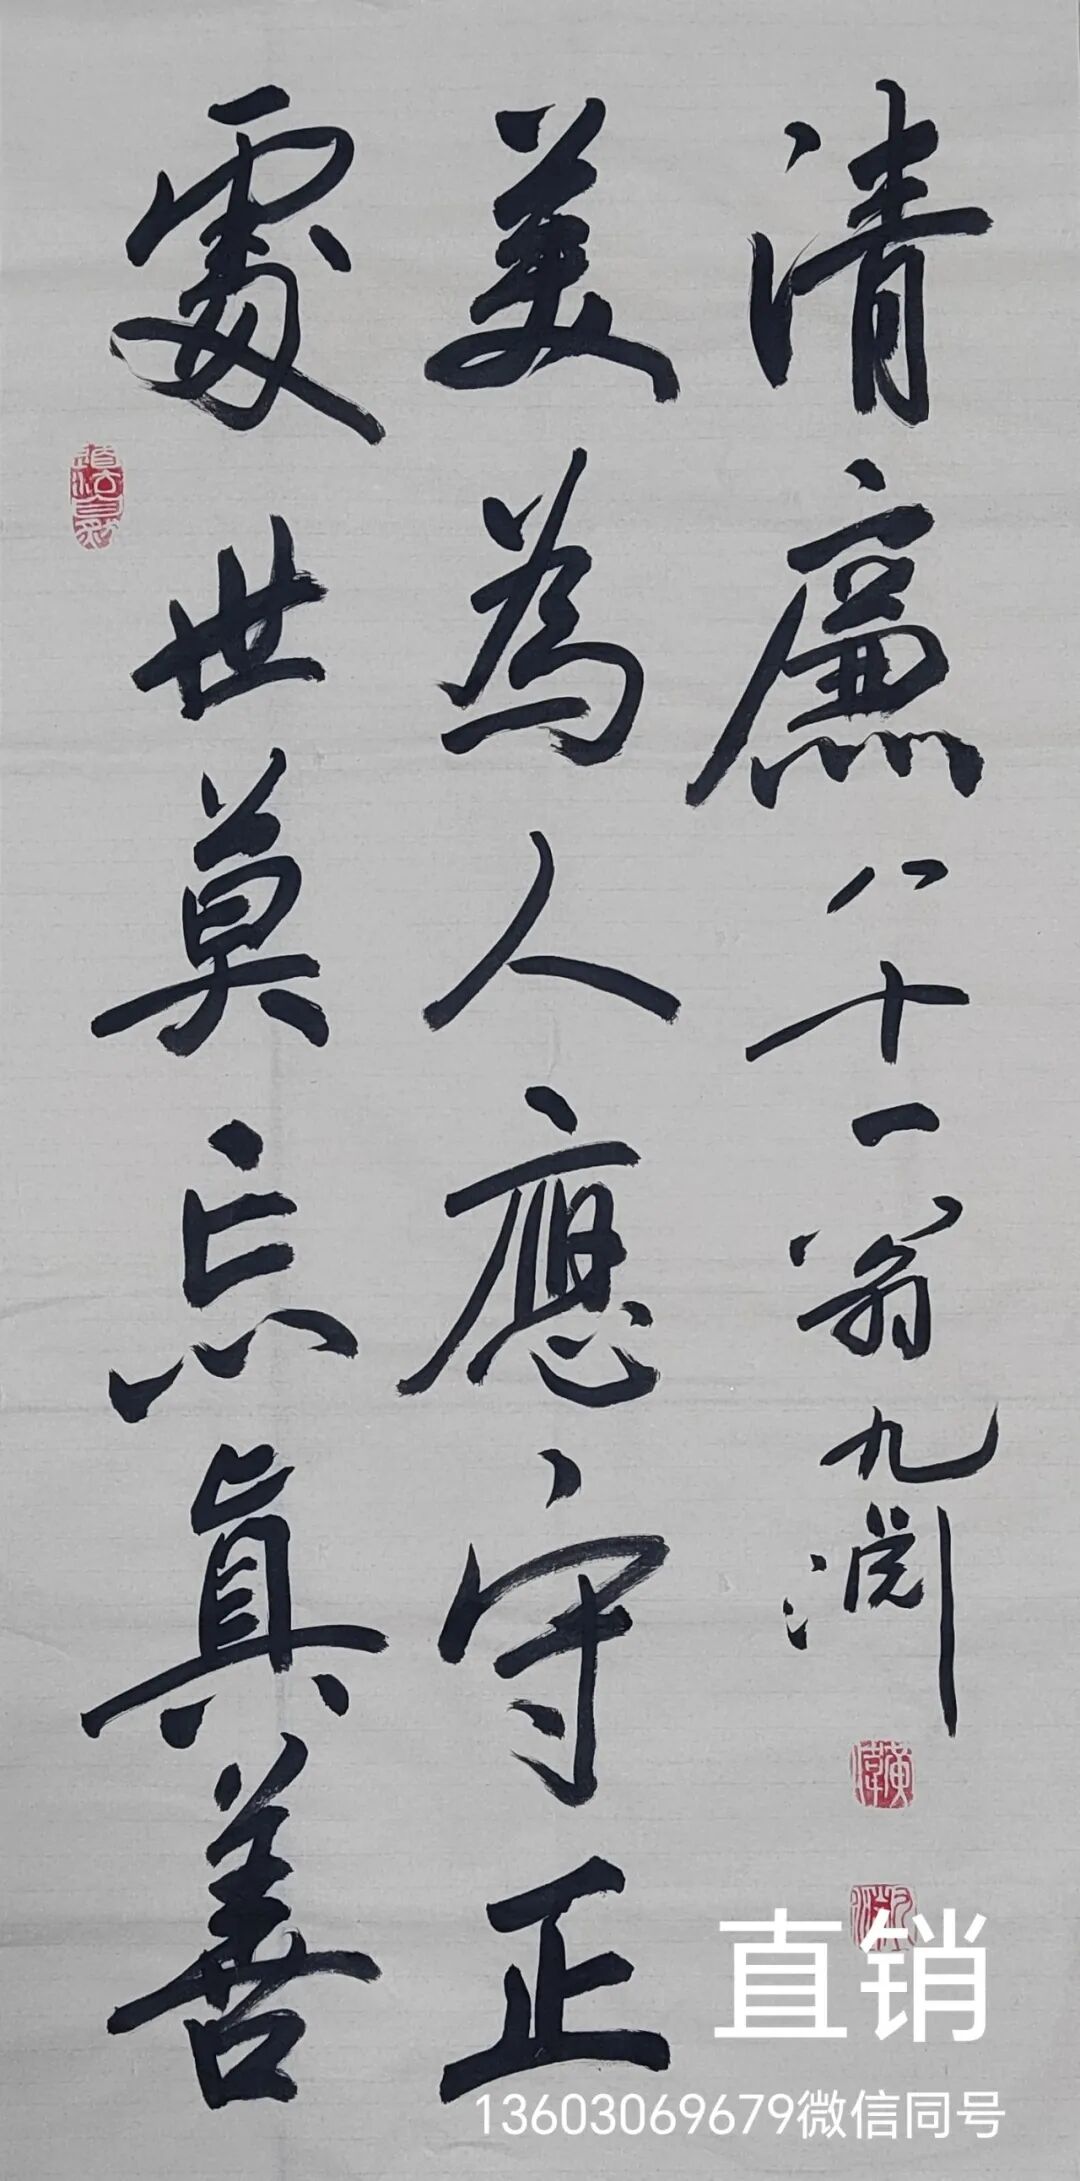 處世莫忘眞善
美為人應守正
清廉八十一翁九淵
道法自然
黃偉
直销
13603069679微信同号